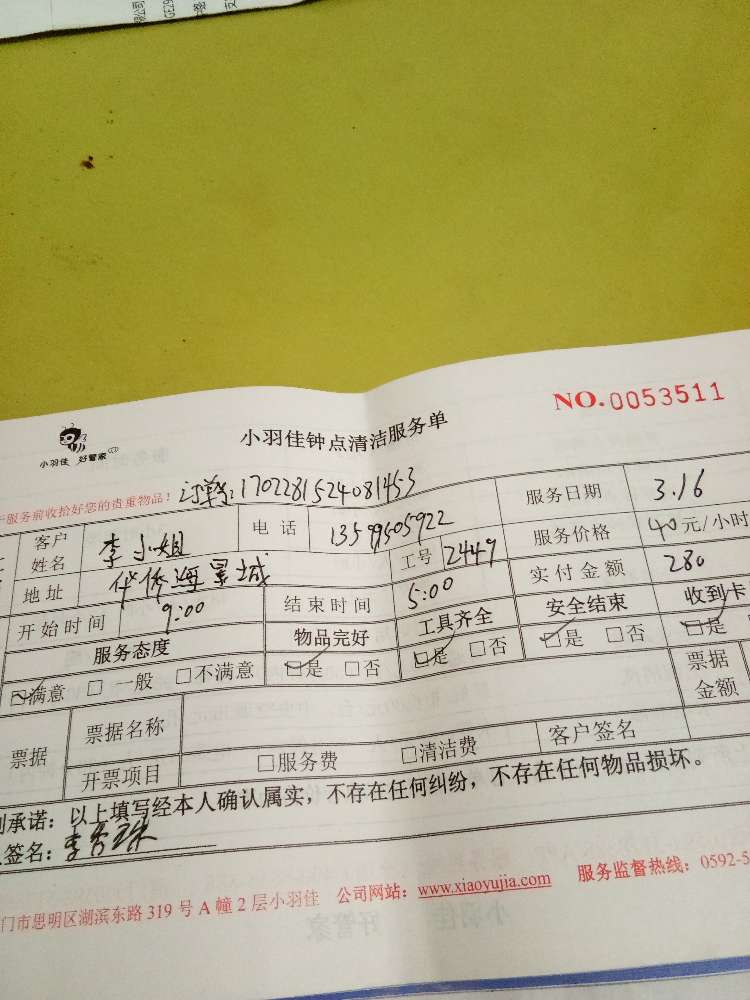 NO.0053511
小羽佳 好管家
小羽佳钟点清洁服务单
服务前收拾好您的贵重物品！ 订单号:1702281524081453
客户姓名 李小姐 电话 13599505922 服务日期 3.16
地址 华侨海景城 工号 2447 服务价格 40元/小时
开始时间 9:00 结束时间 5:00 实付金额 280
服务态度 物品完好 工具齐全 安全结束 收到卡
☑满意 □一般 □不满意 ☑是 □否 ☑是 □否 ☑是 □否 ☑是
票据 票据名称 票据金额
开票项目 □服务费 □清洁费 客户签名
承诺：以上填写经本人确认属实，不存在任何纠纷，不存在任何物品损坏。
签名：李
门市思明区湖滨东路319号A幢2层小羽佳 公司网站：www.xiaoyujia.com 服务监督热线：0592-5